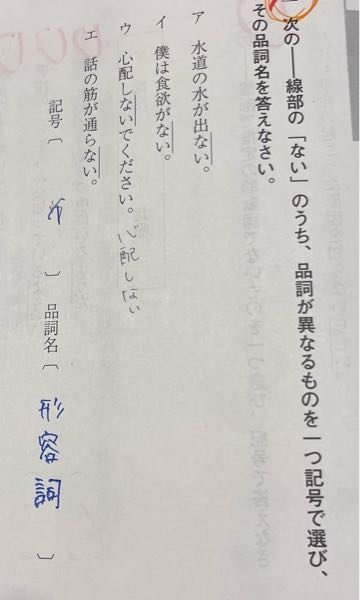 一 次の――線部の「ない」のうち、品詞が異なるものを一つ記号で選び、
その品詞名を答えなさい。
ア 水道の水が出ない。
イ 僕は食欲がない。
ウ 心配しないでください。 心配しない
エ 話の筋が通らない。
記号〔 〕 品詞名〔 形容詞 〕